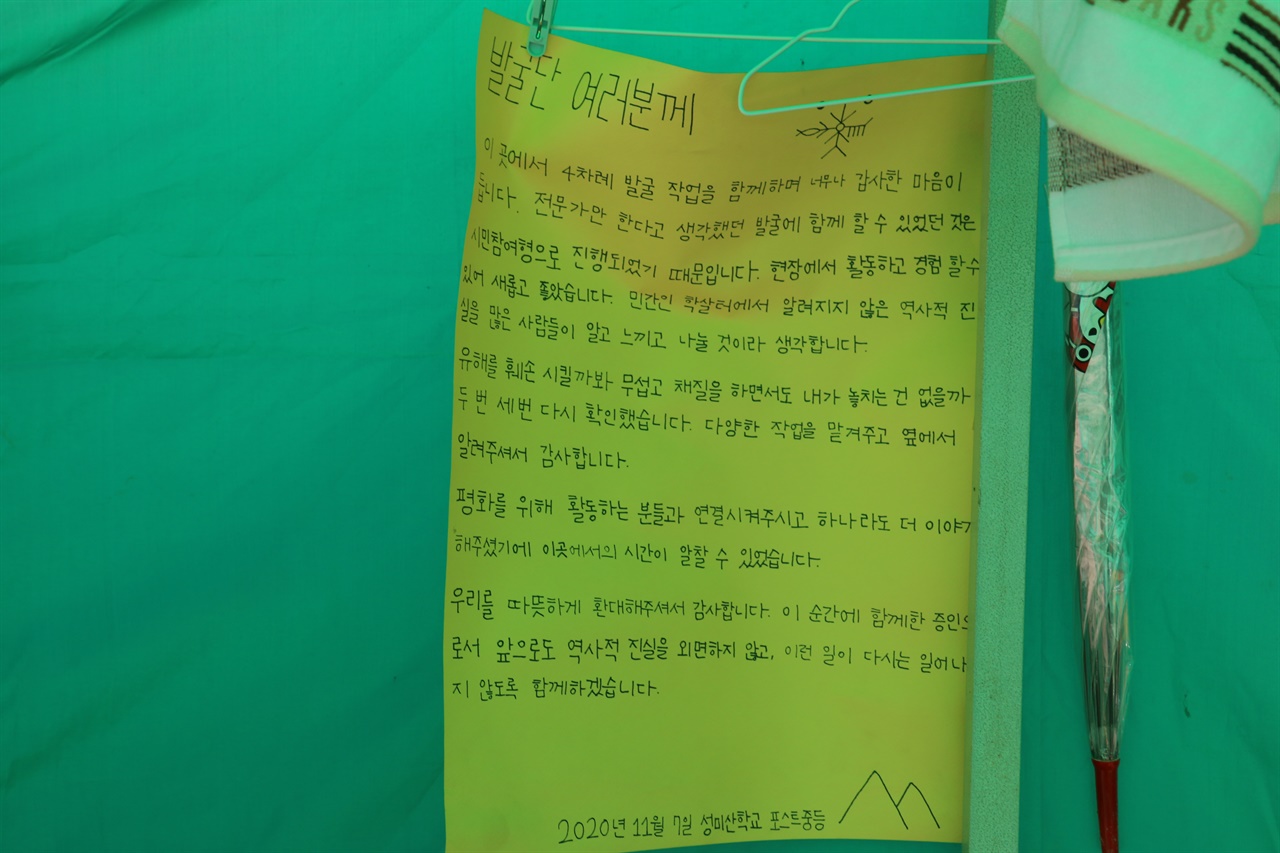 발굴단 여러분께
이 곳에서 4차례 발굴 작업을 함께하며 너무나 감사한 마음이
듭니다. 전문가만 한다고 생각했던 발굴에 함께 할 수 있었던 것은
시민참여형으로 진행되었기 때문입니다. 현장에서 활동하고 경험 할 수
있어 새롭고 좋았습니다. 민간인 학살터에서 알려지지 않은 역사적 진
실을 많은 사람들이 알고 느끼고 나눌 것이라 생각합니다.
유해를 훼손 시킬까봐 무섭고 채질을 하면서도 내가 놓치는 건 없을까
두 번 세 번 다시 확인했습니다. 다양한 작업을 맡겨주고 옆에서
알려주셔서 감사합니다.
평화를 위해 활동하는 분들과 연결시켜주시고 하나라도 더 이야기
해주셨기에 이곳에서의 시간이 알찰 수 있었습니다.
우리를 따뜻하게 환대해주셔서 감사합니다. 이 순간에 함께한 증인으
로서 앞으로도 역사적 진실을 외면하지 않고, 이런 일이 다시는 일어나
지 않도록 함께하겠습니다.
2020년 11월 7일 성미산학교 포스트중등